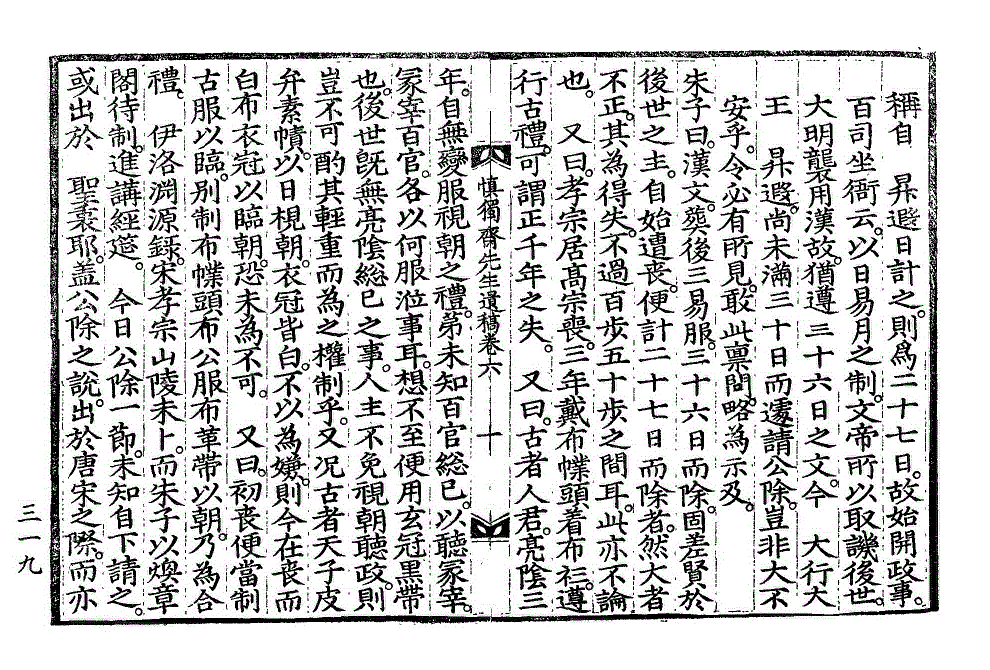 稱自　昇遐日計之則爲二十七日故始開政事
百司坐衙云以日易月之制文帝所以取譏後世
大明襲用漢故猶遵三十六日之文今　大行大
王　昇遐尚未滿三十日而遽請公除豈非大不
安乎令必有所見敢此禀問略為示及
朱子曰漢文葬後三易服三十六日而除固差賢於
後世之主自始遭喪便計二十七日而除者然大者
不正其為得失不過百步五十步之間耳此亦不論
也　又曰孝宗居高宗喪三年戴布幞頭着布衫遵
行古禮可謂正千年之失　又曰古者人君亮陰三
慎獨齋先生遺稿卷六　十
年自無變服視朝之禮第未知百官緫已以聽冢宰
冢宰百官各以何服涖事耳想不至便用玄冠黑帶
也後世旣無亮陰緫已之事人主不免視朝聽政則
豈不可酌其輕重而為之權制乎又况古者天子皮
弁素幘以日視朝衣冠皆白不以為嫌則今在喪而
白布衣冠以臨朝恐未為不可　又曰初喪便當制
古服以臨別制布幞頭布公服布革帶以朝乃為合
禮　伊洛淵源錄宋孝宗山陵未卜而朱子以煥章
閣待制進講經筵　今日公除一節未知自下請之
或出於　聖衷耶盖公除之說出於唐宋之際而亦
三一九